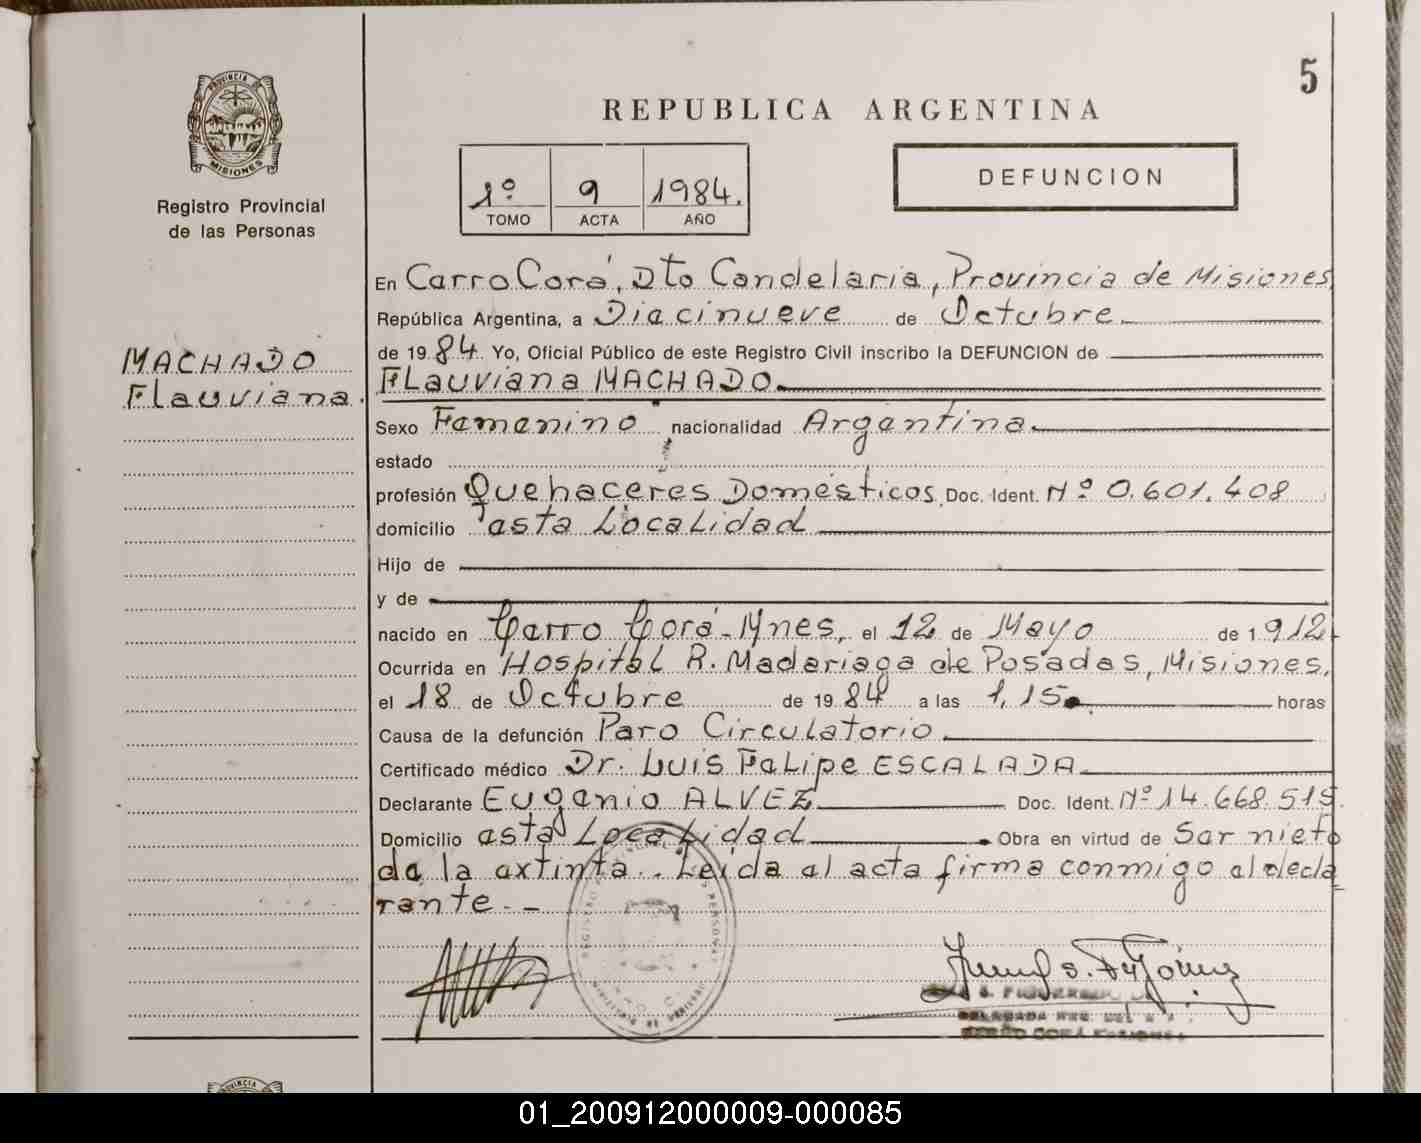 5
PROVINCIA DE
MISIONES
REPUBLICA ARGENTINA
1º 9 1984.
TOMO ACTA AÑO
DEFUNCION
Registro Provincial
de las Personas
En Carro Corá, Dto Candelaria, Provincia de Misiones
República Argentina, a Diacinueve de Octubre
de 1984. Yo, Oficial Público de este Registro Civil inscribo la DEFUNCION de
MACHADO
Flauviana.
FLauviana MACHADO.
Sexo Famanino nacionalidad Argantina.
estado
profesión Quehaceres Domésticos. Doc. Ident. Nº 0.601.408
domicilio asta Localidad
Hijo de
y de
nacido en Carro Corá-Mnes, el 12 de Mayo de 1912
Ocurrida en Hospital R. Madariaga de Posadas, Misiones,
el 18 de Octubre de 1984 a las 1,15 horas
Causa de la defunción Paro Circulatorio.
Certificado médico Dr. Luis Falipe ESCALADA.
Declarante Euganio ALVEZ Doc. Ident. Nº 14.668.515.
Domicilio asta Localidad Obra en virtud de Sar nieto
da la axtinta.. Leida al acta firma conmigo al decla
rante.-
DELEGADA
01_200912000009-000085